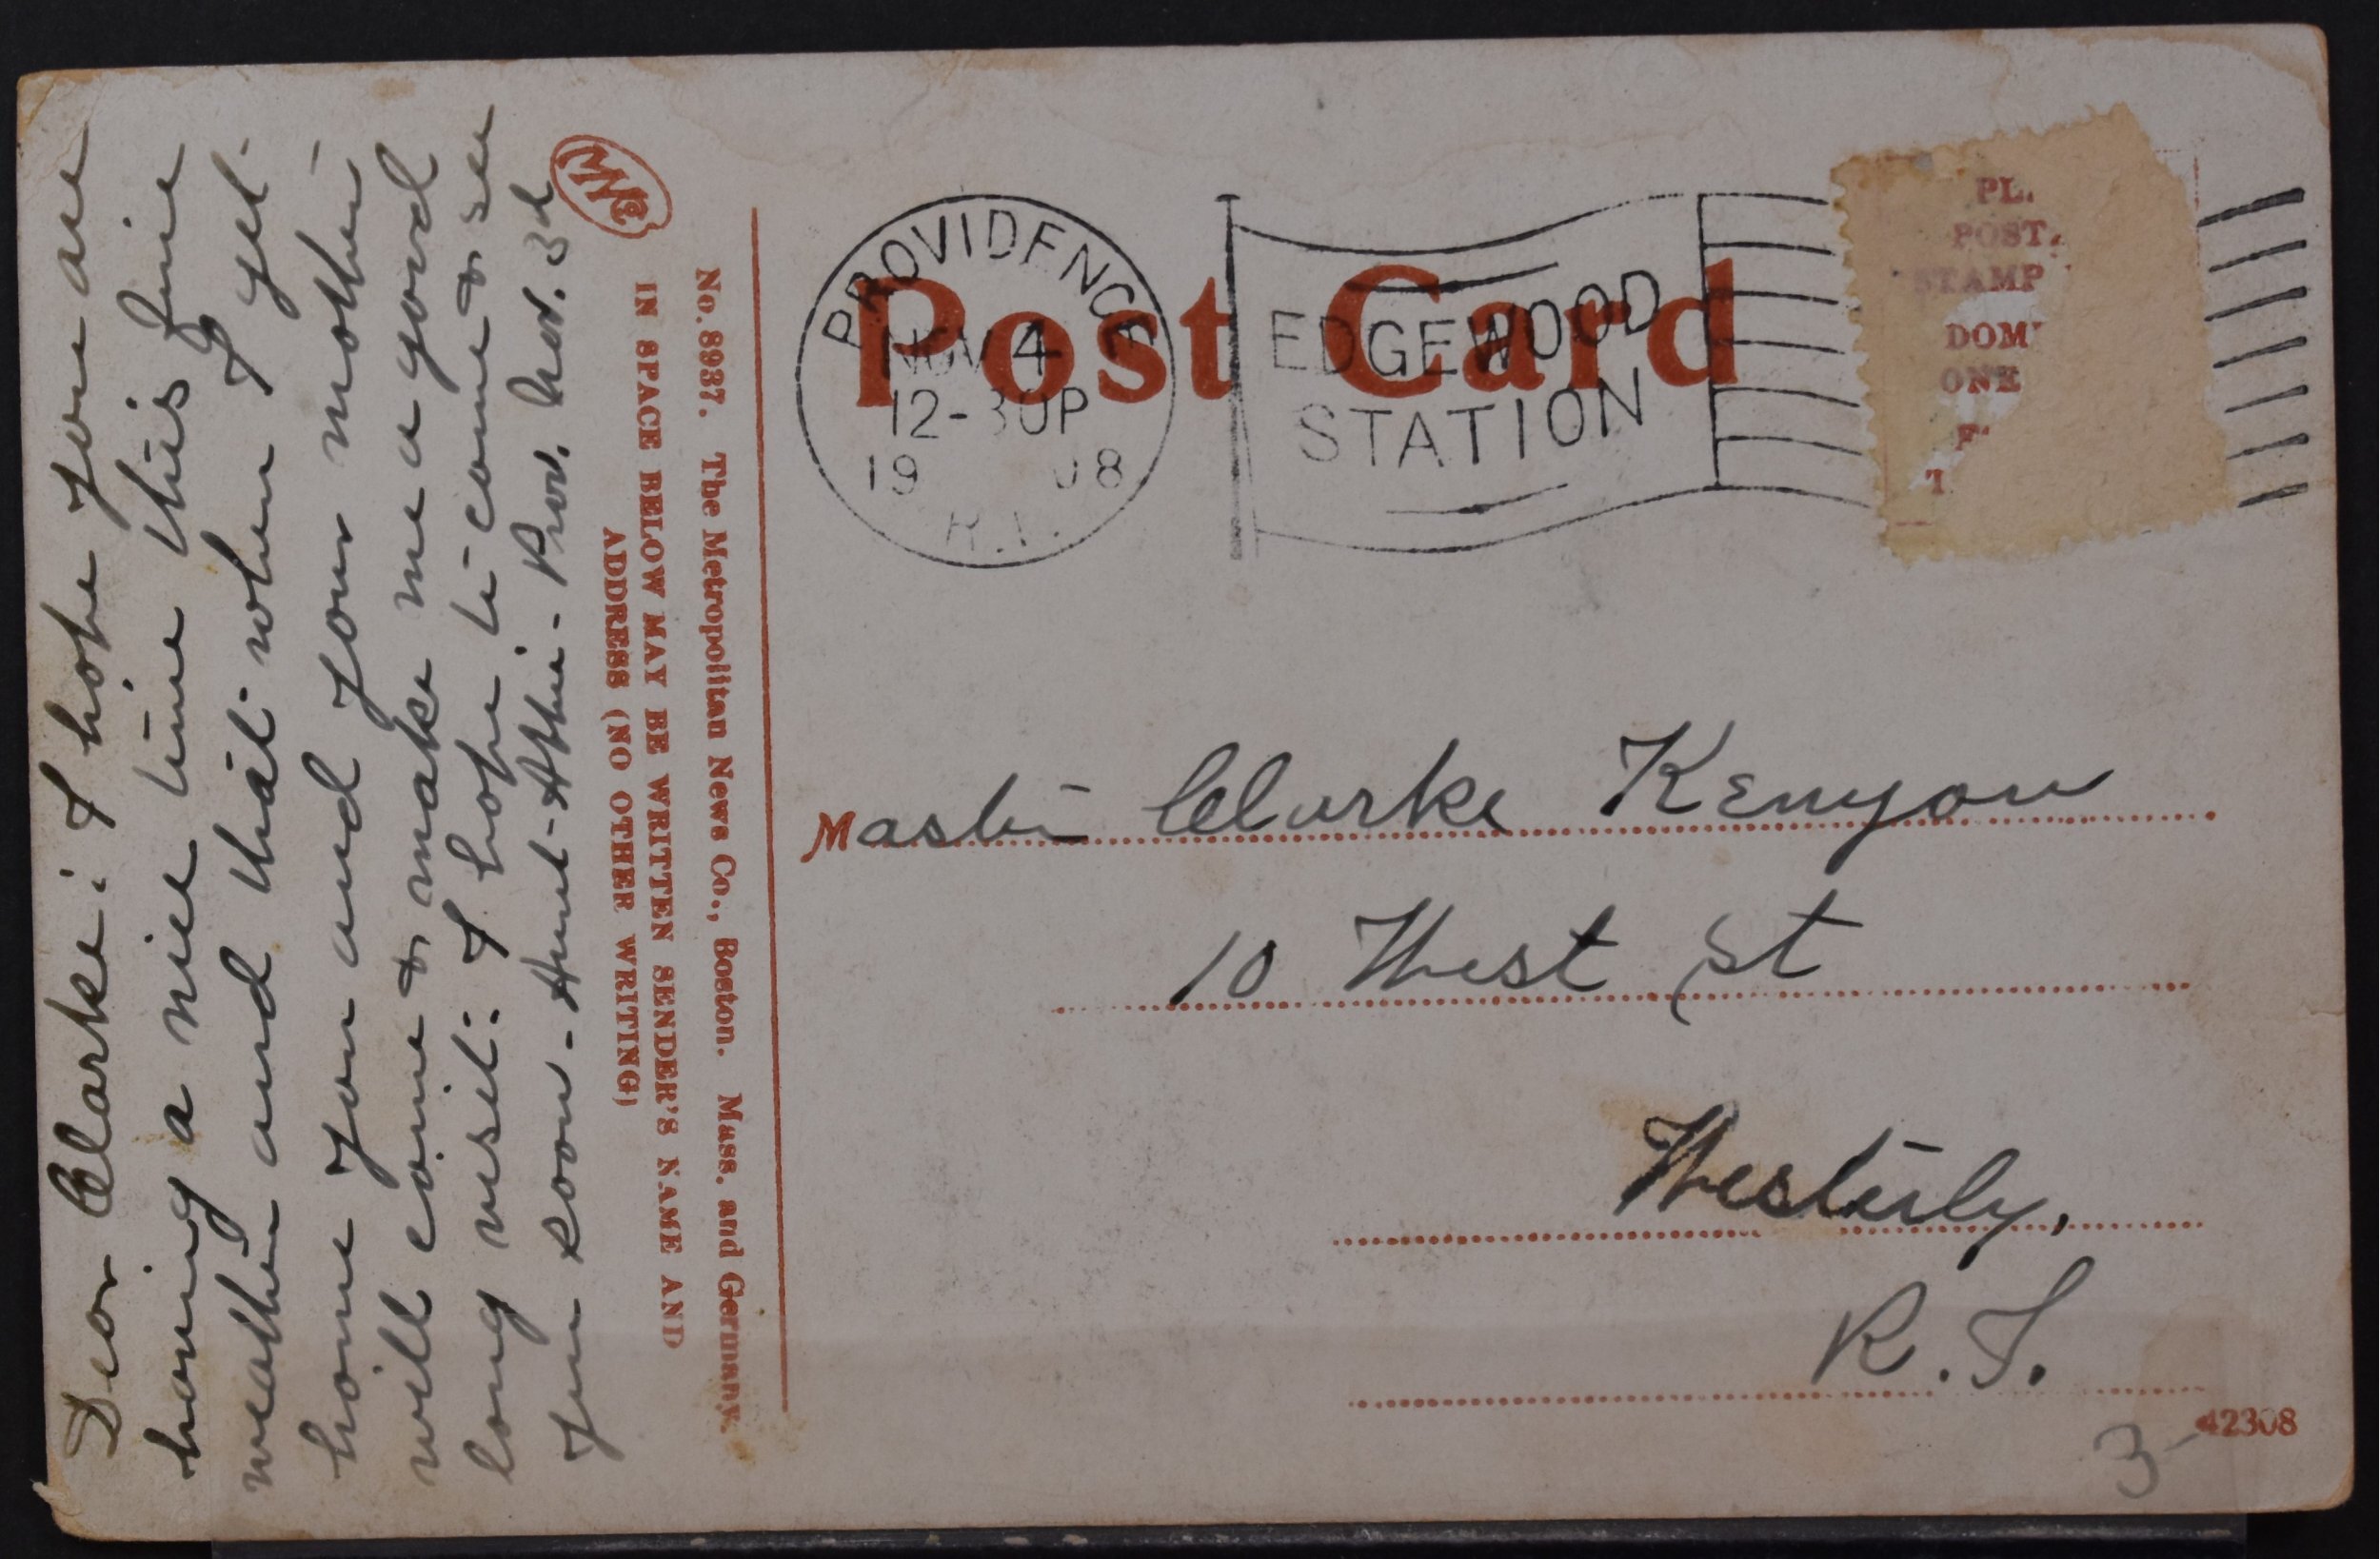 Dear Clarke: I hope you are
having a nice time this fine
weather and that when I get
home you and your mother
will come & make me a good
long visit. I hope to come & see
you soon - Aunt Abbie - Prov. Nov. 3d
MNCo
No. 8937. The Metropolitan News Co., Boston. Mass. and Germany.
IN SPACE BELOW MAY BE WRITTEN SENDER'S NAME AND
ADDRESS (NO OTHER WRITING)
Post Card
PROVIDENCE
NOV 4
12-30P
1908
R.I.
EDGEWOOD
STATION
PL
POST
STAMP
DOM
ONE
F
T
Master Clarke Kenyon
10 West St
Westerly,
R.I.
42308
3-